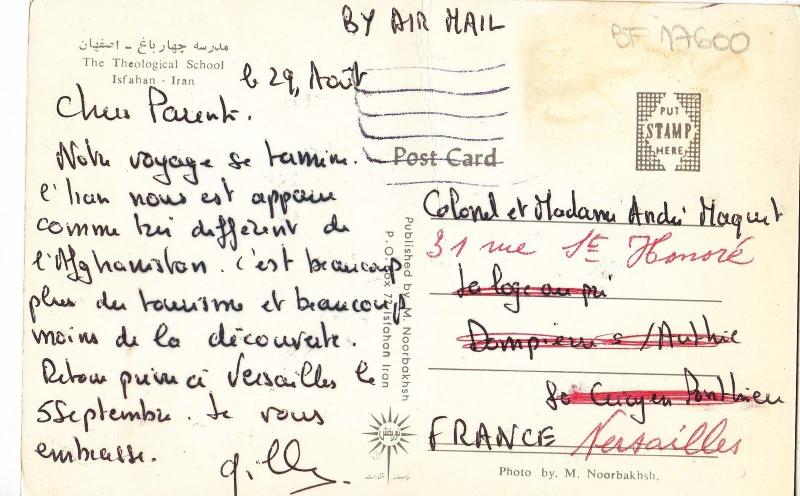 BY AIR MAIL
BF 17600
مدرسه چهار باغ - اصفهان
The Theological School
Isfahan - Iran
le 29, Août
Chers Parents.
Notre voyage se termine.
l'Iran nous est apparu
comme très différent de
l'Afghanistan. c'est beaucoup
plus du tourisme et beaucoup
moins de la découverte.
Retour prévu à Versailles le
5 Septembre. Je vous
embrasse.
Post Card
PUT
STAMP
HERE
Colonel et Madame André Maquet
31 rue St Honoré
La loge au pré
Dompierre s/Authie
80 Crécy en Ponthieu
FRANCE Versailles
Published by M. Noorbakhsh
Isfahan Iran
Photo by. M. Noorbakhsh.